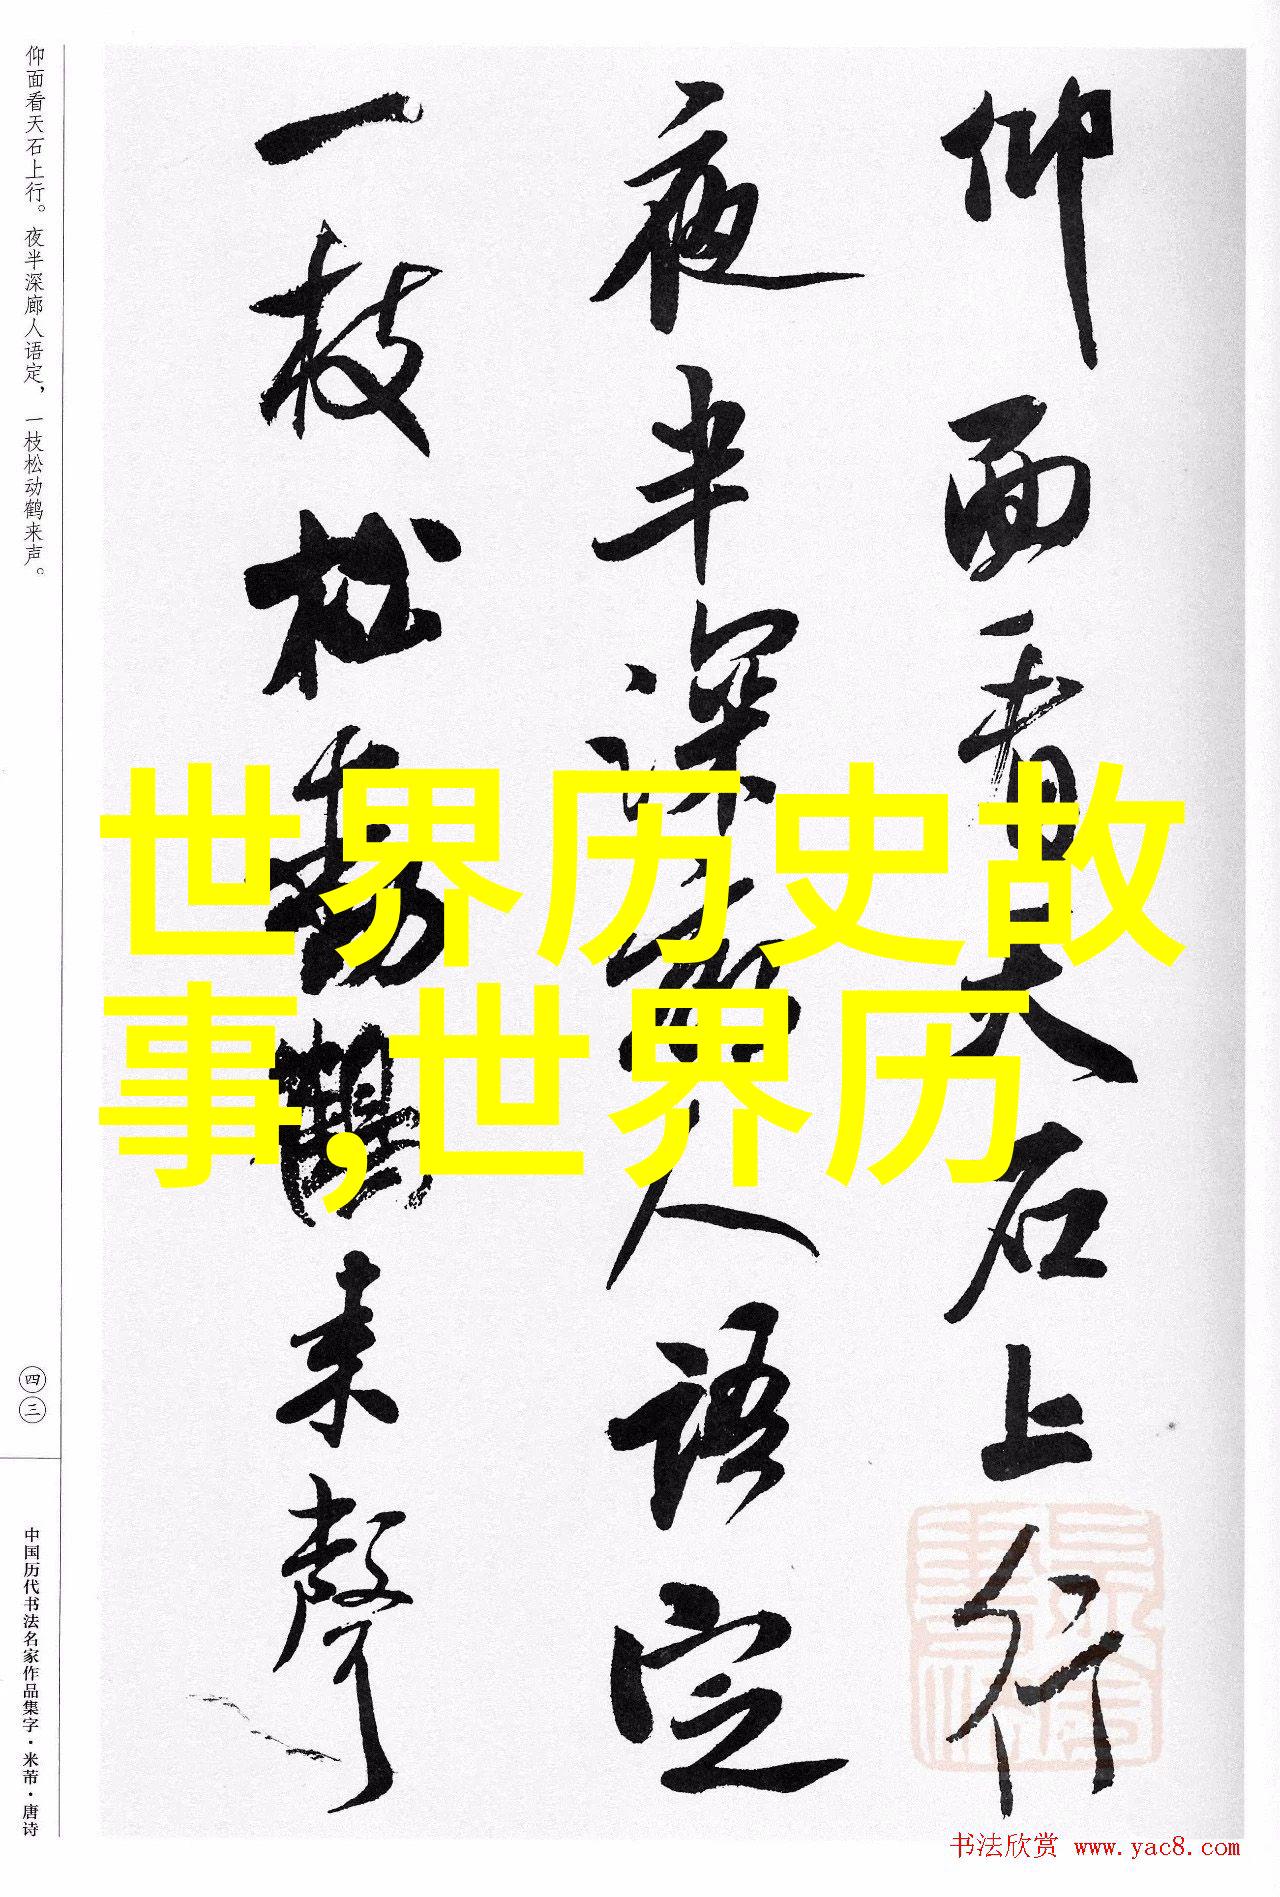 仰面看天石上行
夜半深廊人语定
一枝松動鶴来聲
仰面看天石上行。夜半深廊人语定，一枝松动鹤来声。
四三
中国历代书法名家作品集字·米芾·唐诗
世界历史故
事,世界历
书法欣赏 www.yac8.com